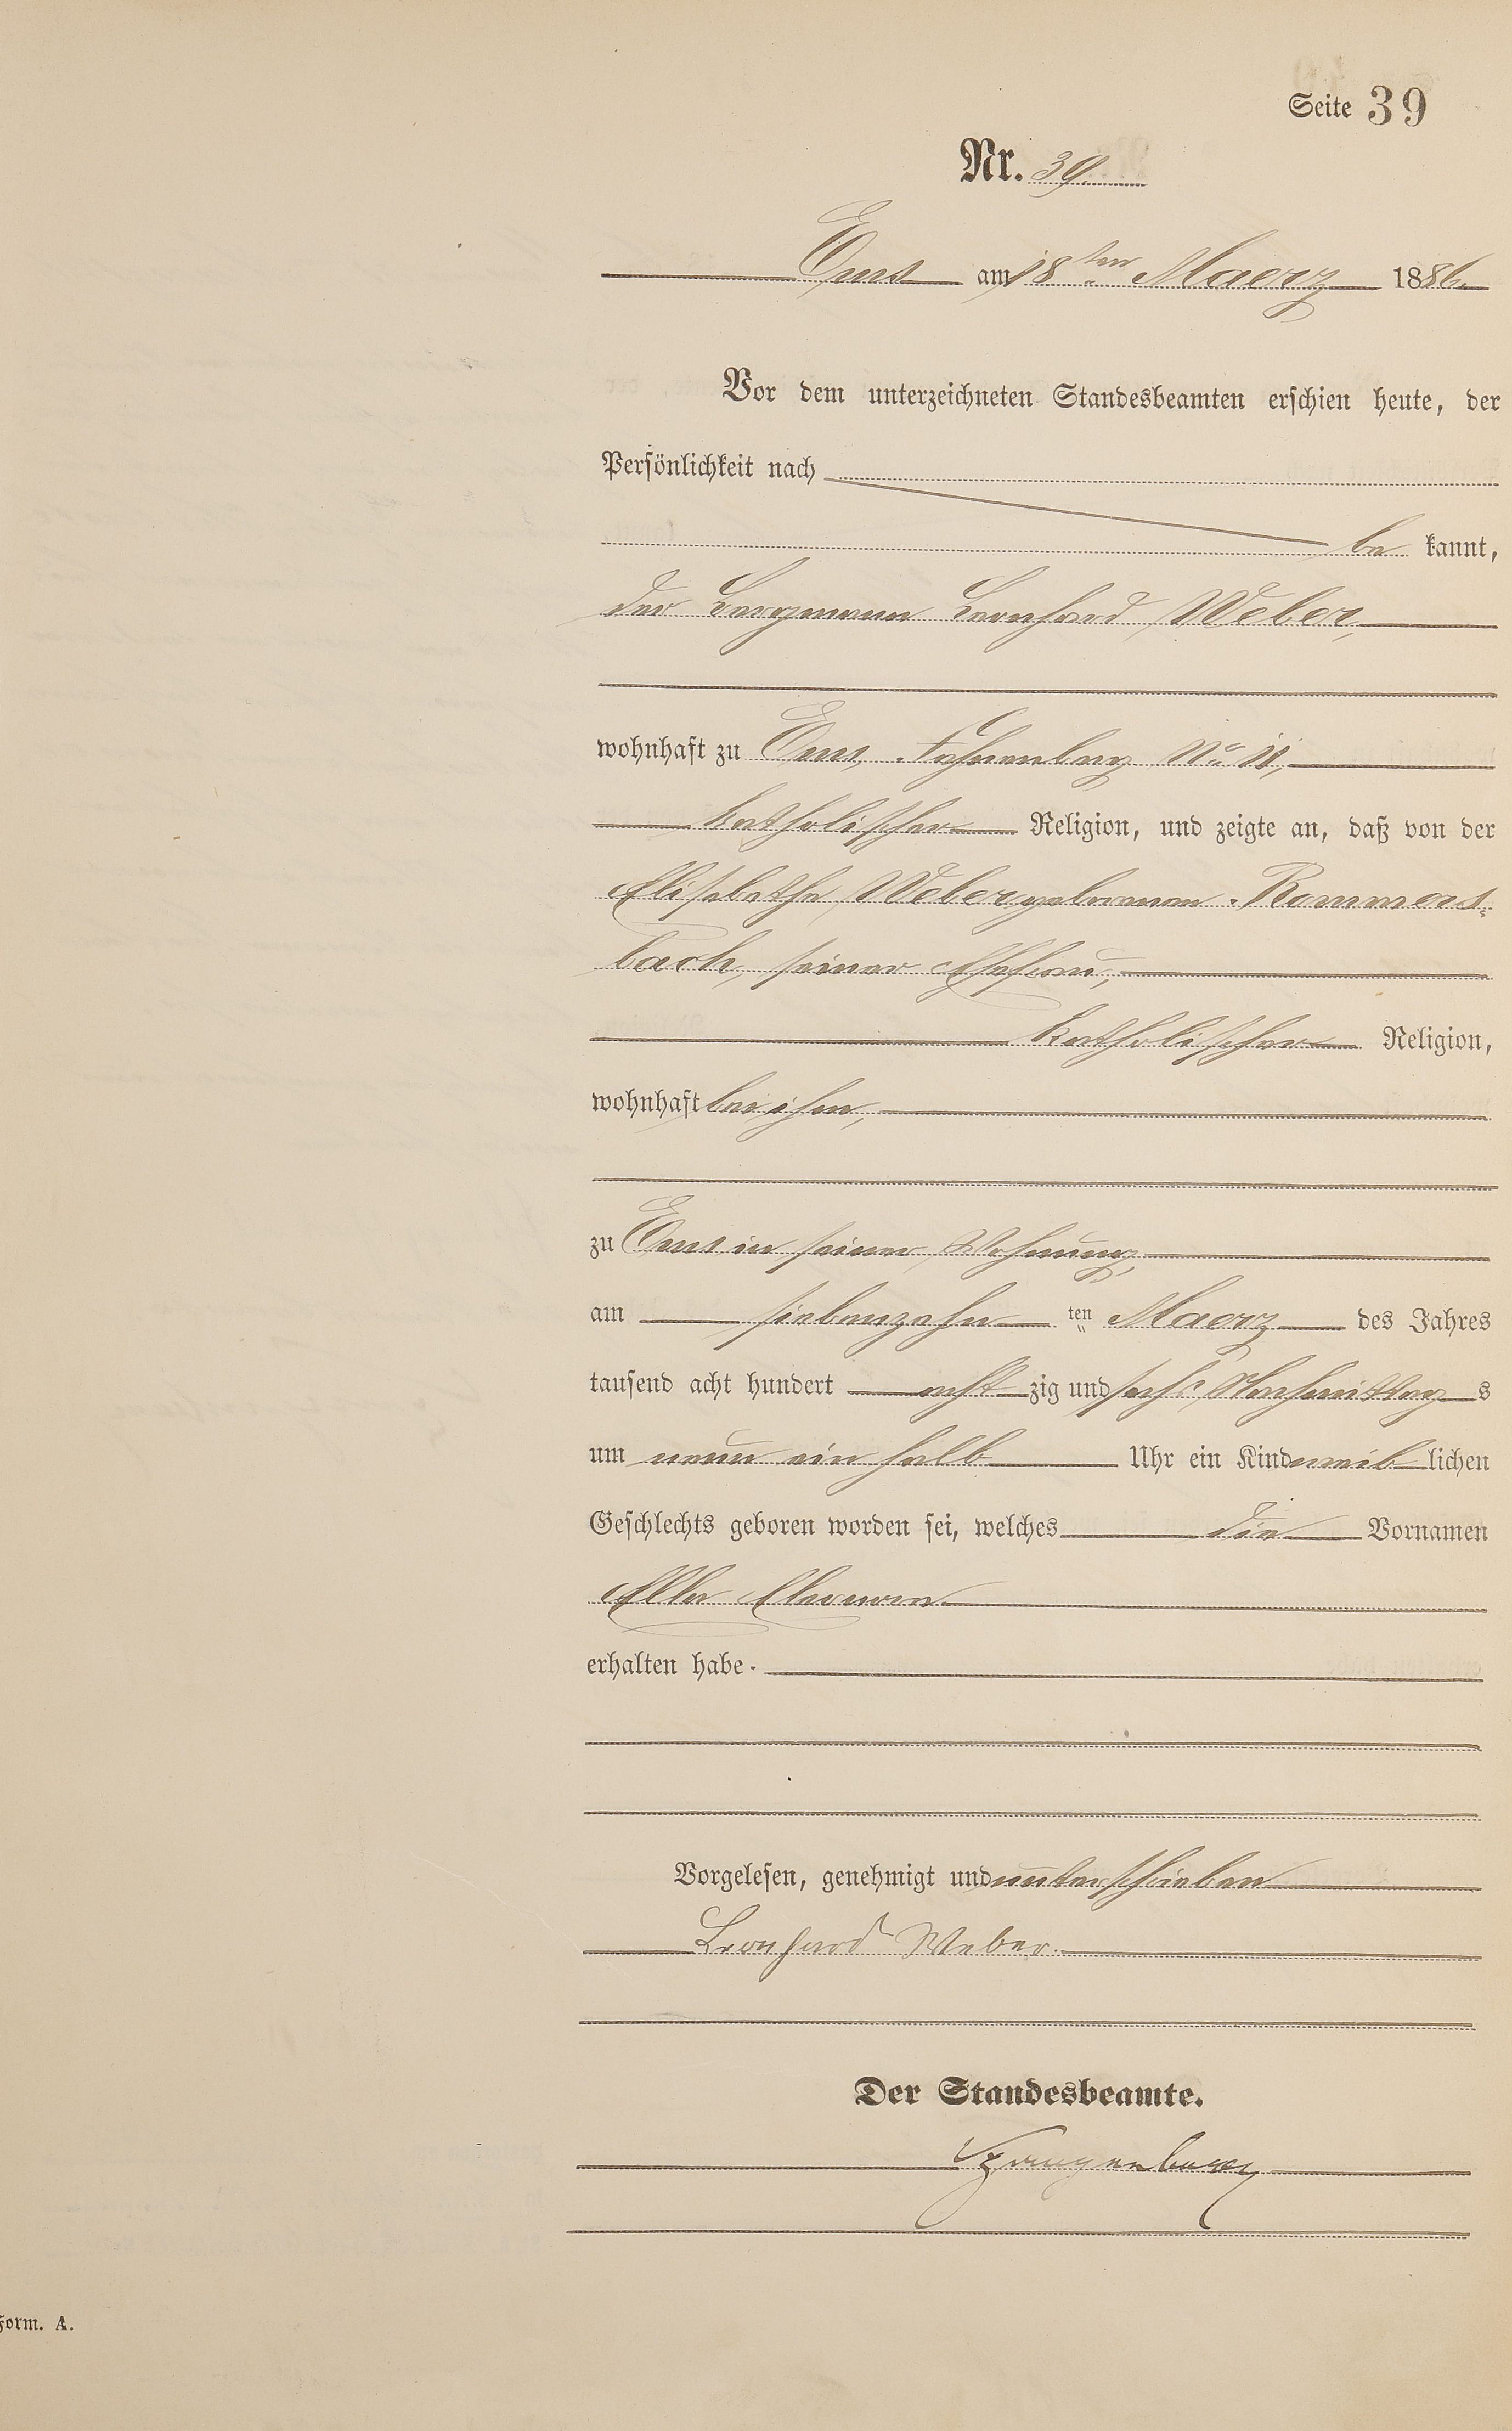 Seite 39
Nr. 39.
Ems am 18ten Maerz 1886.
Vor dem unterzeichneten Standesbeamten erschien heute, der
Persönlichkeit nach
be kannt,
der Bergmann Leonhard Weber,
wohnhaft zu Ems, No 11,
katholischer Religion, und zeigte an, daß von der
Elisabetha Weber geborenen Rommers-
bach, seiner Ehefrau,
katholischer Religion,
wohnhaft bei ihm,
zu Ems in seiner Wohnung,
am siebenzehn ten Maerz des Jahres
tausend acht hundert acht zig und sechs Nachmittag s
um neun ein halb Uhr ein Kind weib lichen
Geschlechts geboren worden sei, welches die Vornamen
Ella
erhalten habe.
Vorgelesen, genehmigt und unterschrieben
Leonhard Weber.
Der Standesbeamte.
Form. A.